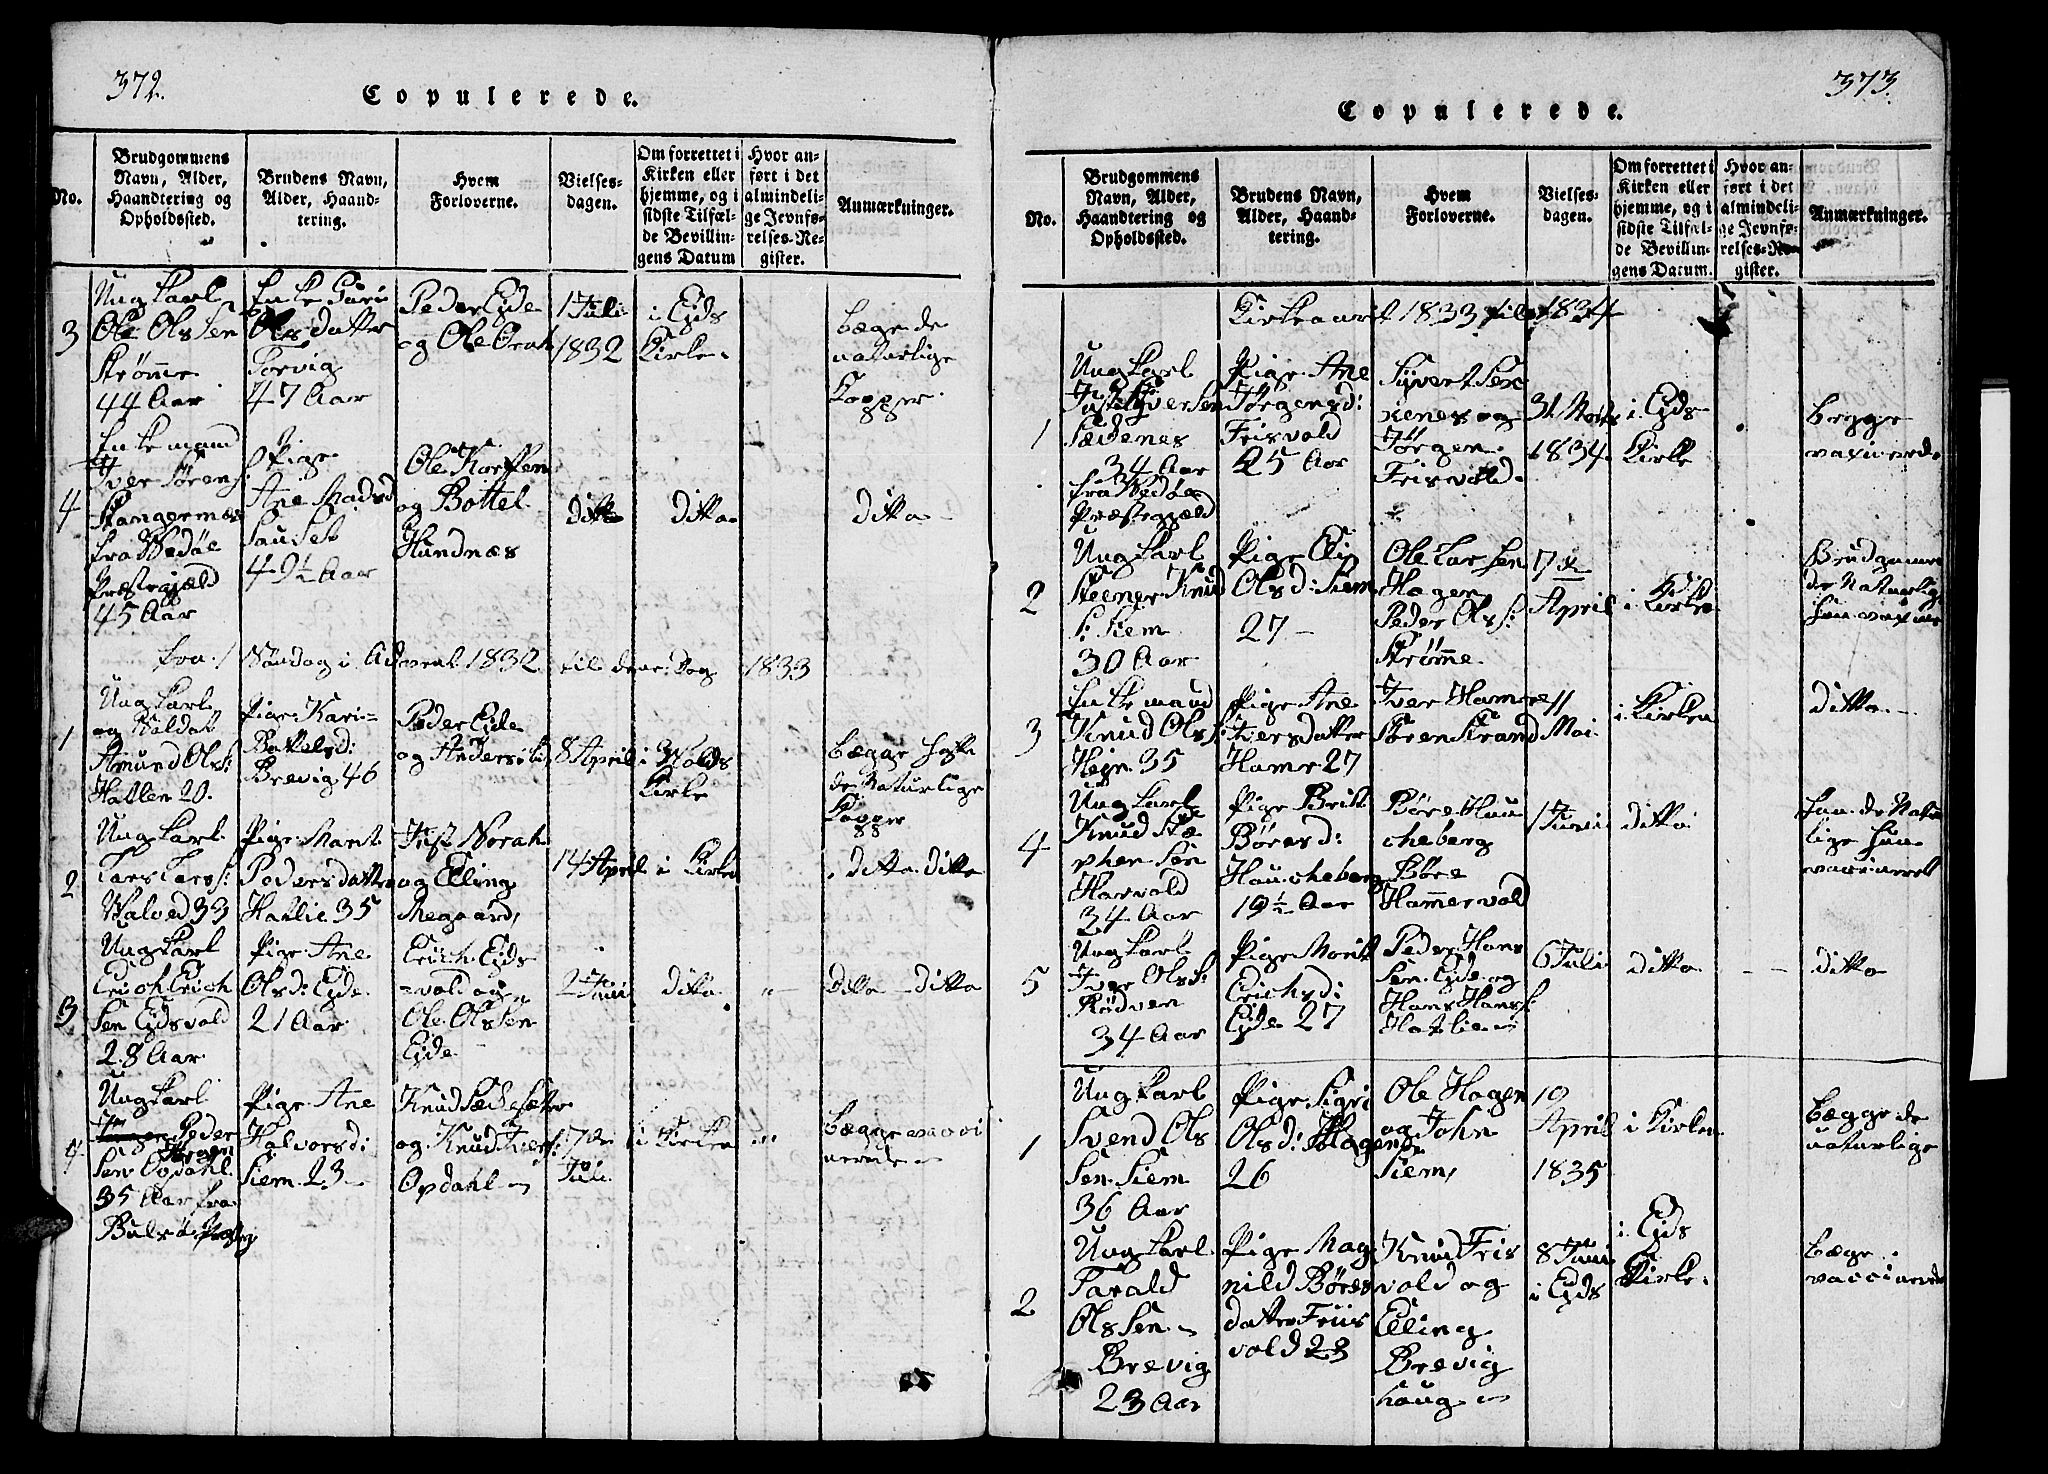 372.
Copulerede.
No.
Brudgommens Navn, Alder, Haandtering og Opholdssted.
Brudens Navn, Alder, Haandtering.
Hvem Forloverne.
Vielsesdagen.
Om forrettet i Kirken eller hjemme, og i sidste Tilfælde Bevillingens Datum
Hvor anført i det almindelige Jevnførelses-Register.
Anmærkninger.
3
Ungkarl
Ole Olssen
Strømme
44 Aar
Enke Guri
Olsdatter
Torvig
47 Aar
Peder Eide
og Ole Orah
1 Juli
1832
i Eids
Kirke.
bægge de
naturlige
Kopper.
4
Enkemand
Iver Sörens:
Stangernæs
fra Bedöe
Præstegjæld
45 Aar
Pige
Ane Madsd
Sauset
49½ Aar
Ole
og Bottel
Hundnæs
ditto
ditto
ditto
fra 1 Söndag i Advent 1832 til den. Dag 1833
1
Ungkarl
og Soldat
Amund Olss:
Hatlen 20.
Pige Kari
Bottelsd:
Brevig 46
Peder Eide
og Anders
8 April
i Wolds
Kirke
bægge hafte
de Naturlige
Kopper
2
Ungkarl
Lars Larss:
33
Pige Marit
Pedersdatter
Hatlie 35
Just Norah
og Elling
Megaard,
14 April
i Kirken
ditto ditto
3
Ungkarl
Erich Erich
Sen Eidsvold
28 Aar
Pige Ane
Olsd: Eide
21 Aar
Erich Eids
vold og
Ole Olssen
Eide
2 Juni
ditto
ditto ditto
4
Ungkarl
Peder
Sen Opdahl
35 Aar fra
Pige Ane
Halvorsd:
Siem 23
Knud Sæckesæter
og Knud Ivers:
Opdahl
7de
Juli
i Kirken
bægge vacci
nerede
373.
Copulerede.
No.
Brudgommens Navn, Alder, Haandtering og Opholdssted.
Brudens Navn, Alder, Haandtering.
Hvem Forloverne.
Vielsesdagen.
Om forrettet i Kirken eller hjemme, og i sidste Tilfælde Bevillingens Datum.
Hvor anført i det almindelige Jevnførelses-Register.
Anmærkninger.
Kirkeaaret 1833 til 1834
1
Ungkarl
Iversen
Sædenes
34 Aar
fra Bedöe
Præstegjæld
Pige Ane
Jörgensd:
Frisvold
25 Aar
Sivert Sex
xenes og
Jörgen
Frisvold
31 Marts
1834
i Eids
Kirke
begge
vaxinerede
2
Ungkarl
Steener Knud
S: Siem
30 Aar
Pige Eli
Olsd: Siem
27
Ole Larsen
Hagen
Peder Olss:
Strømme
7de
April
i Kirken
Brudgommen
de Naturlige
hun
3
Enkemand
Knud Olss:
Hejn 35
Pige Ane
Iversdatter
Hamr 27
Iver Hamre
Sören Strand
11
Mai
i Kirken
ditto
4
Ungkarl
Knud Stæ
phen Sen
Harvold
34 Aar
Pige Brit
Börsd:
Haucheberg
19½ Aar
Böre Hau
cheberg
Böre
Hammervold
1 Juni
ditto
han de Natur
lige hun
vaccineret
5
Ungkarl
Iver Olss:
Rödven
34 Aar
Pige Marit
Erichsd:
Eide 27
Peder Hans
Sen Eide og
Hans Hanss:
Hatlie
6 Juli
ditto
ditto
1
Ungkarl
Svend Ols
Sen Siem
36 Aar
Pige Sigri
Olsd: Hagen
26
Ole Hagen
og John
Siem,
19
April
1835
i Kirken
bægge de
naturlige
2
Ungkarl
Tarald
Olssen
Brevig
23 Aar
Pige Mag
nild Börs
datter Friis
vold 23
Knud Fris
vold og
Elling
Brevig
haug
8 Juni
i Eids
i Eids
Kirke.
bæge
vaccinerede